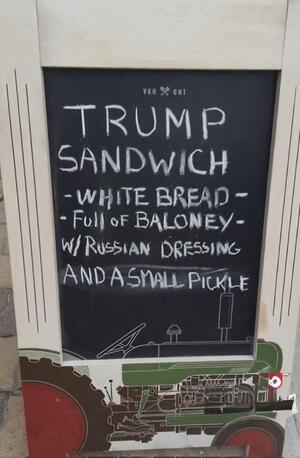 VKH ONT
TRUMP
SANDWICH
- WHITE BREAD -
- Full of BALONEY -
W/ RUSSIAN DRESSING
AND A SMALL PICKLE